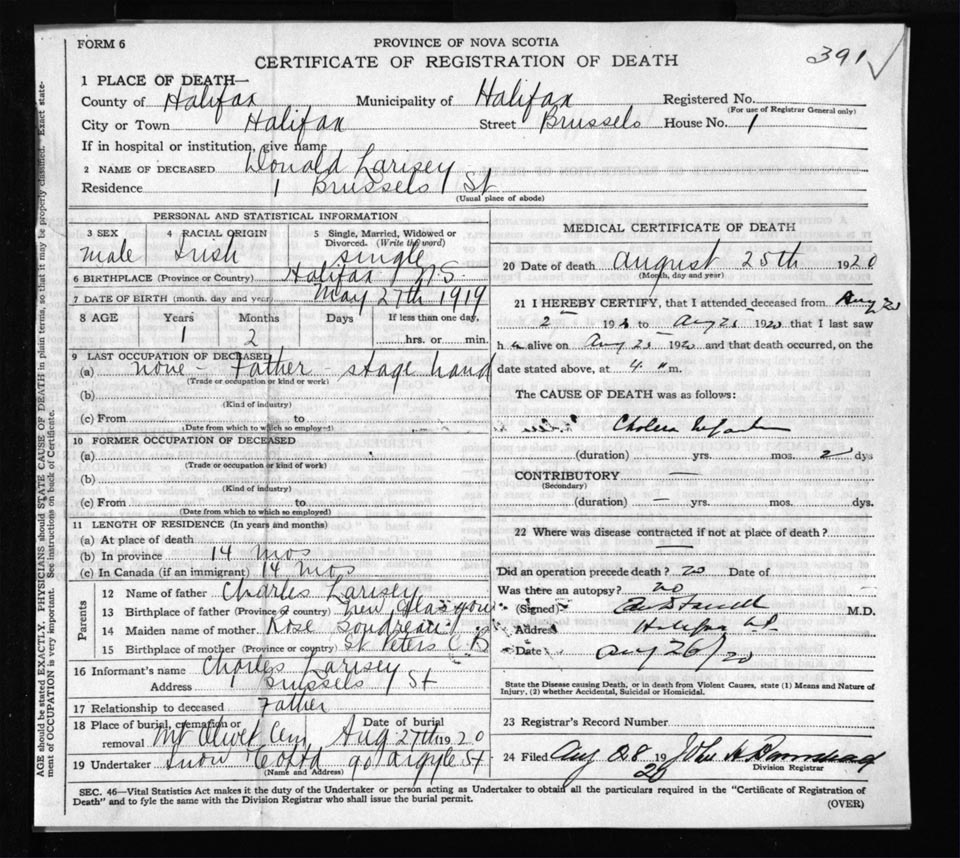 FORM 6
PROVINCE OF NOVA SCOTIA
CERTIFICATE OF REGISTRATION OF DEATH
391 ✓
1 PLACE OF DEATH—
County of Halifax Municipality of Halifax Registered No.
(For use of Registrar General only)
City or Town Halifax Street Brussels House No. 1
If in hospital or institution, give name
2 NAME OF DECEASED Donald Larisey
Residence 1 Brussels St
(Usual place of abode)
PERSONAL AND STATISTICAL INFORMATION
3 SEX 4 RACIAL ORIGIN 5 Single, Married, Widowed or Divorced. (Write the word)
male Irish single
6 BIRTHPLACE (Province or Country) Halifax N.S.
7 DATE OF BIRTH (month, day and year) May 27th 1919
8 AGE Years Months Days If less than one day,
1 2 hrs. or min.
9 LAST OCCUPATION OF DECEASED
(a) none - Father - stage hand
(Trade or occupation or kind or work)
(b)
(Kind of industry)
(c) From to
(Date from which to which so employed)
10 FORMER OCCUPATION OF DECEASED
(a)
(Trade or occupation or kind of work)
(b)
(Kind of industry)
(c) From to
(Date from which to which so employed)
11 LENGTH OF RESIDENCE (In years and months)
(a) At place of death
(b) In province 14 mos
(c) In Canada (if an immigrant) 14 mos
Parents
12 Name of father Charles Larisey
13 Birthplace of father (Province or country) New Glasgow
14 Maiden name of mother Rose
15 Birthplace of mother (Province or country) St Peters C B
16 Informant's name Charles Larisey
Address 1 Brussels St
17 Relationship to deceased Father
18 Place of burial, cremation or removal Mt Olivet Cem Date of burial Aug 27th 1920
19 Undertaker Snow Co Ltd 90 Argyle St
(Name and Address)
MEDICAL CERTIFICATE OF DEATH
20 Date of death August 25th 1920
(Month, day and year)
21 I HEREBY CERTIFY, that I attended deceased from Aug 23
19 to Aug 25 1920 that I last saw
h alive on Aug 25 1920 and that death occurred, on the
date stated above, at 4 m.
The CAUSE OF DEATH was as follows:
Cholera Infantum
(duration) yrs. mos. 2 dys
CONTRIBUTORY —
(Secondary)
(duration) — yrs. mos. dys.
22 Where was disease contracted if not at place of death?
—
Did an operation precede death? no Date of
Was there an autopsy? no
(Signed) M.D.
Address Halifax N.S.
Date Aug 26/20
State the Disease causing Death, or in death from Violent Causes, state (1) Means and Nature of
Injury, (2) whether Accidental, Suicidal or Homicidal.
23 Registrar's Record Number
24 Filed Aug 28 1920 John
Division Registrar
SEC. 46—Vital Statistics Act makes it the duty of the Undertaker or person acting as Undertaker to obtain all the particulars required in the "Certificate of Registration of
Death" and to fyle the same with the Division Registrar who shall issue the burial permit.
(OVER)
AGE should be stated EXACTLY. PHYSICIANS should STATE CAUSE OF DEATH in plain terms, so that it may be properly classified. Exact state-
ment of OCCUPATION is very important. See instructions on back of Certificate.